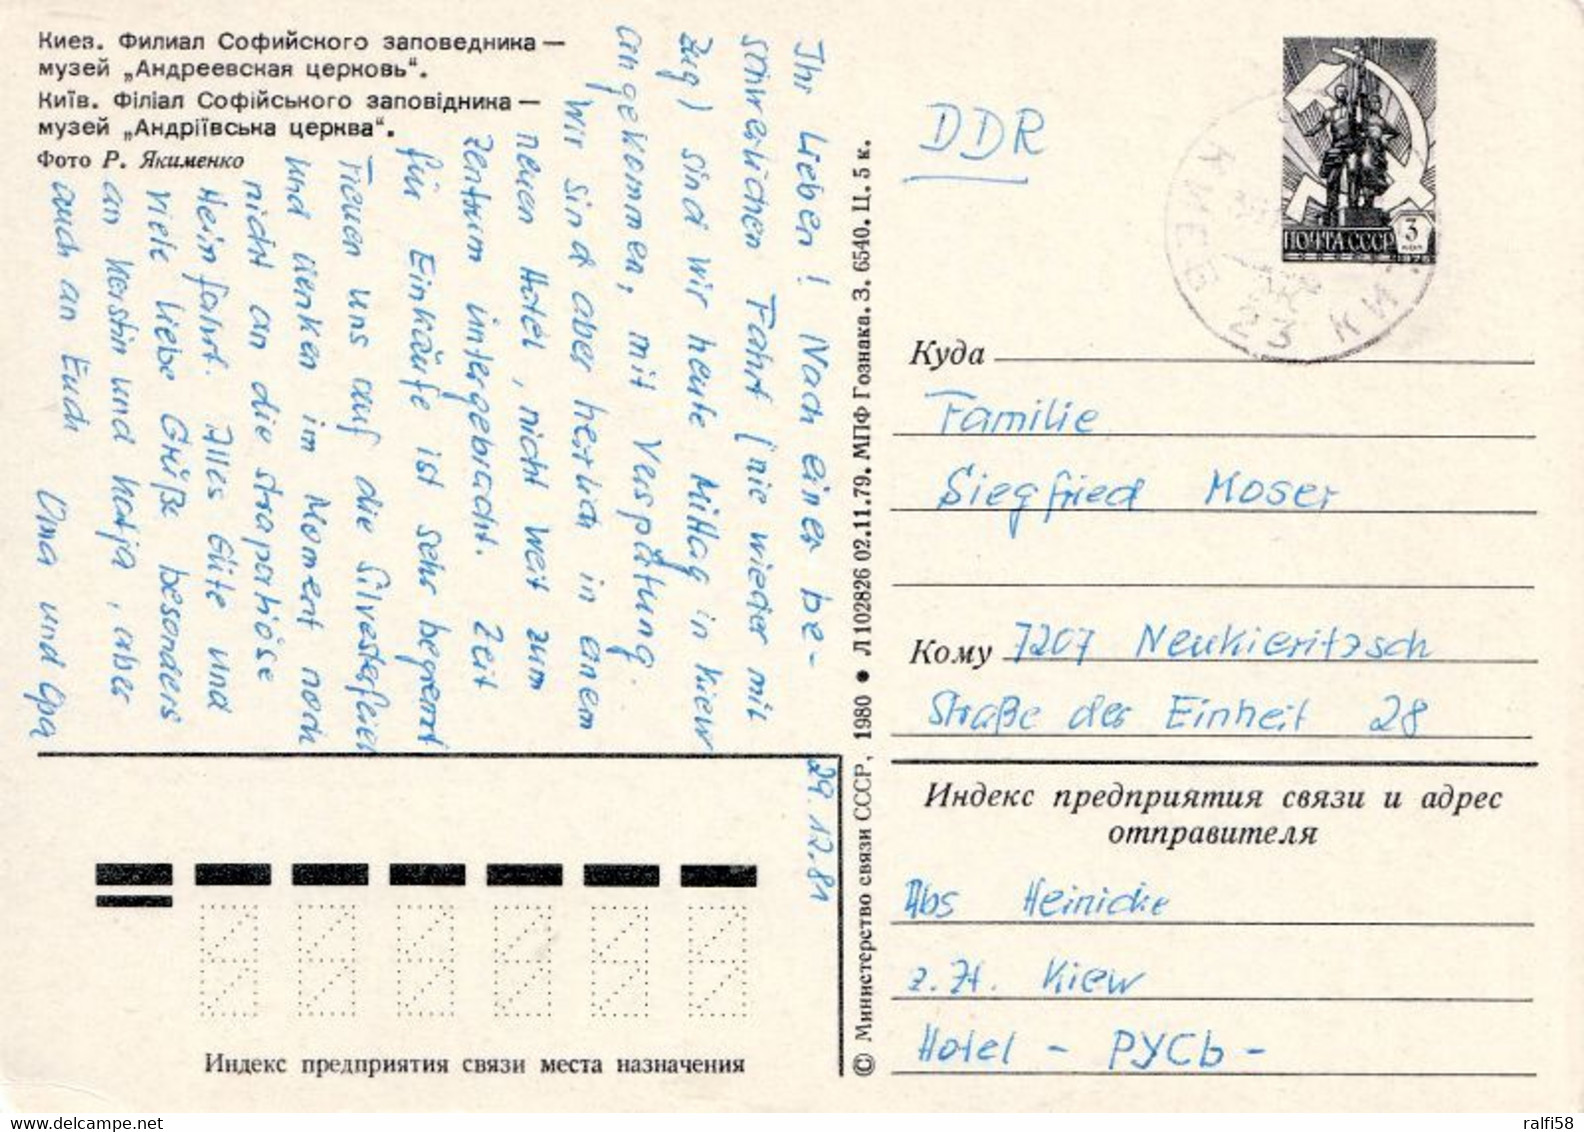 Киев. Филиал Софийского заповедника —
музей „Андреевская церковь“.
Київ. Філіал Софійського заповідника —
музей „Андріївська церква“.
Фото Р. Якименко
Ihr Lieben! Nach einer be-
schwerlichen Fahrt (nie wieder mit
Zug) sind wir heute Mittag in Kiew
angekommen, mit Verspätung.
Wir sind aber herrlich in einem
neuen Hotel, nicht weit zum
Zentrum untergebracht. Zeit
für Einkäufe ist sehr begrenzt
Freuen uns auf die Silvesterfeier
und denken im Moment noch
nicht an die strapaziöse
Heimfahrt. Alles Gute und
viele liebe Grüße besonders
an Kerstin und Katja, aber
auch an Euch
Oma und Opa
29.12.81
© Министерство связи СССР, 1980 ● Л 102826 02.11.79. МПФ Гознака. З. 6540. Ц. 5 к.
DDR
ПОЧТА СССР
3
коп
1976
КИЕВ 23
Куда
Familie
Siegfried Moser
Кому 7207 Neukieritzsch
Straße der Einheit 28
Индекс предприятия связи и адрес
отправителя
Abs Heinicke
z. Zt. Kiew
Hotel - РУСЬ -
Индекс предприятия связи места назначения
ralfi58